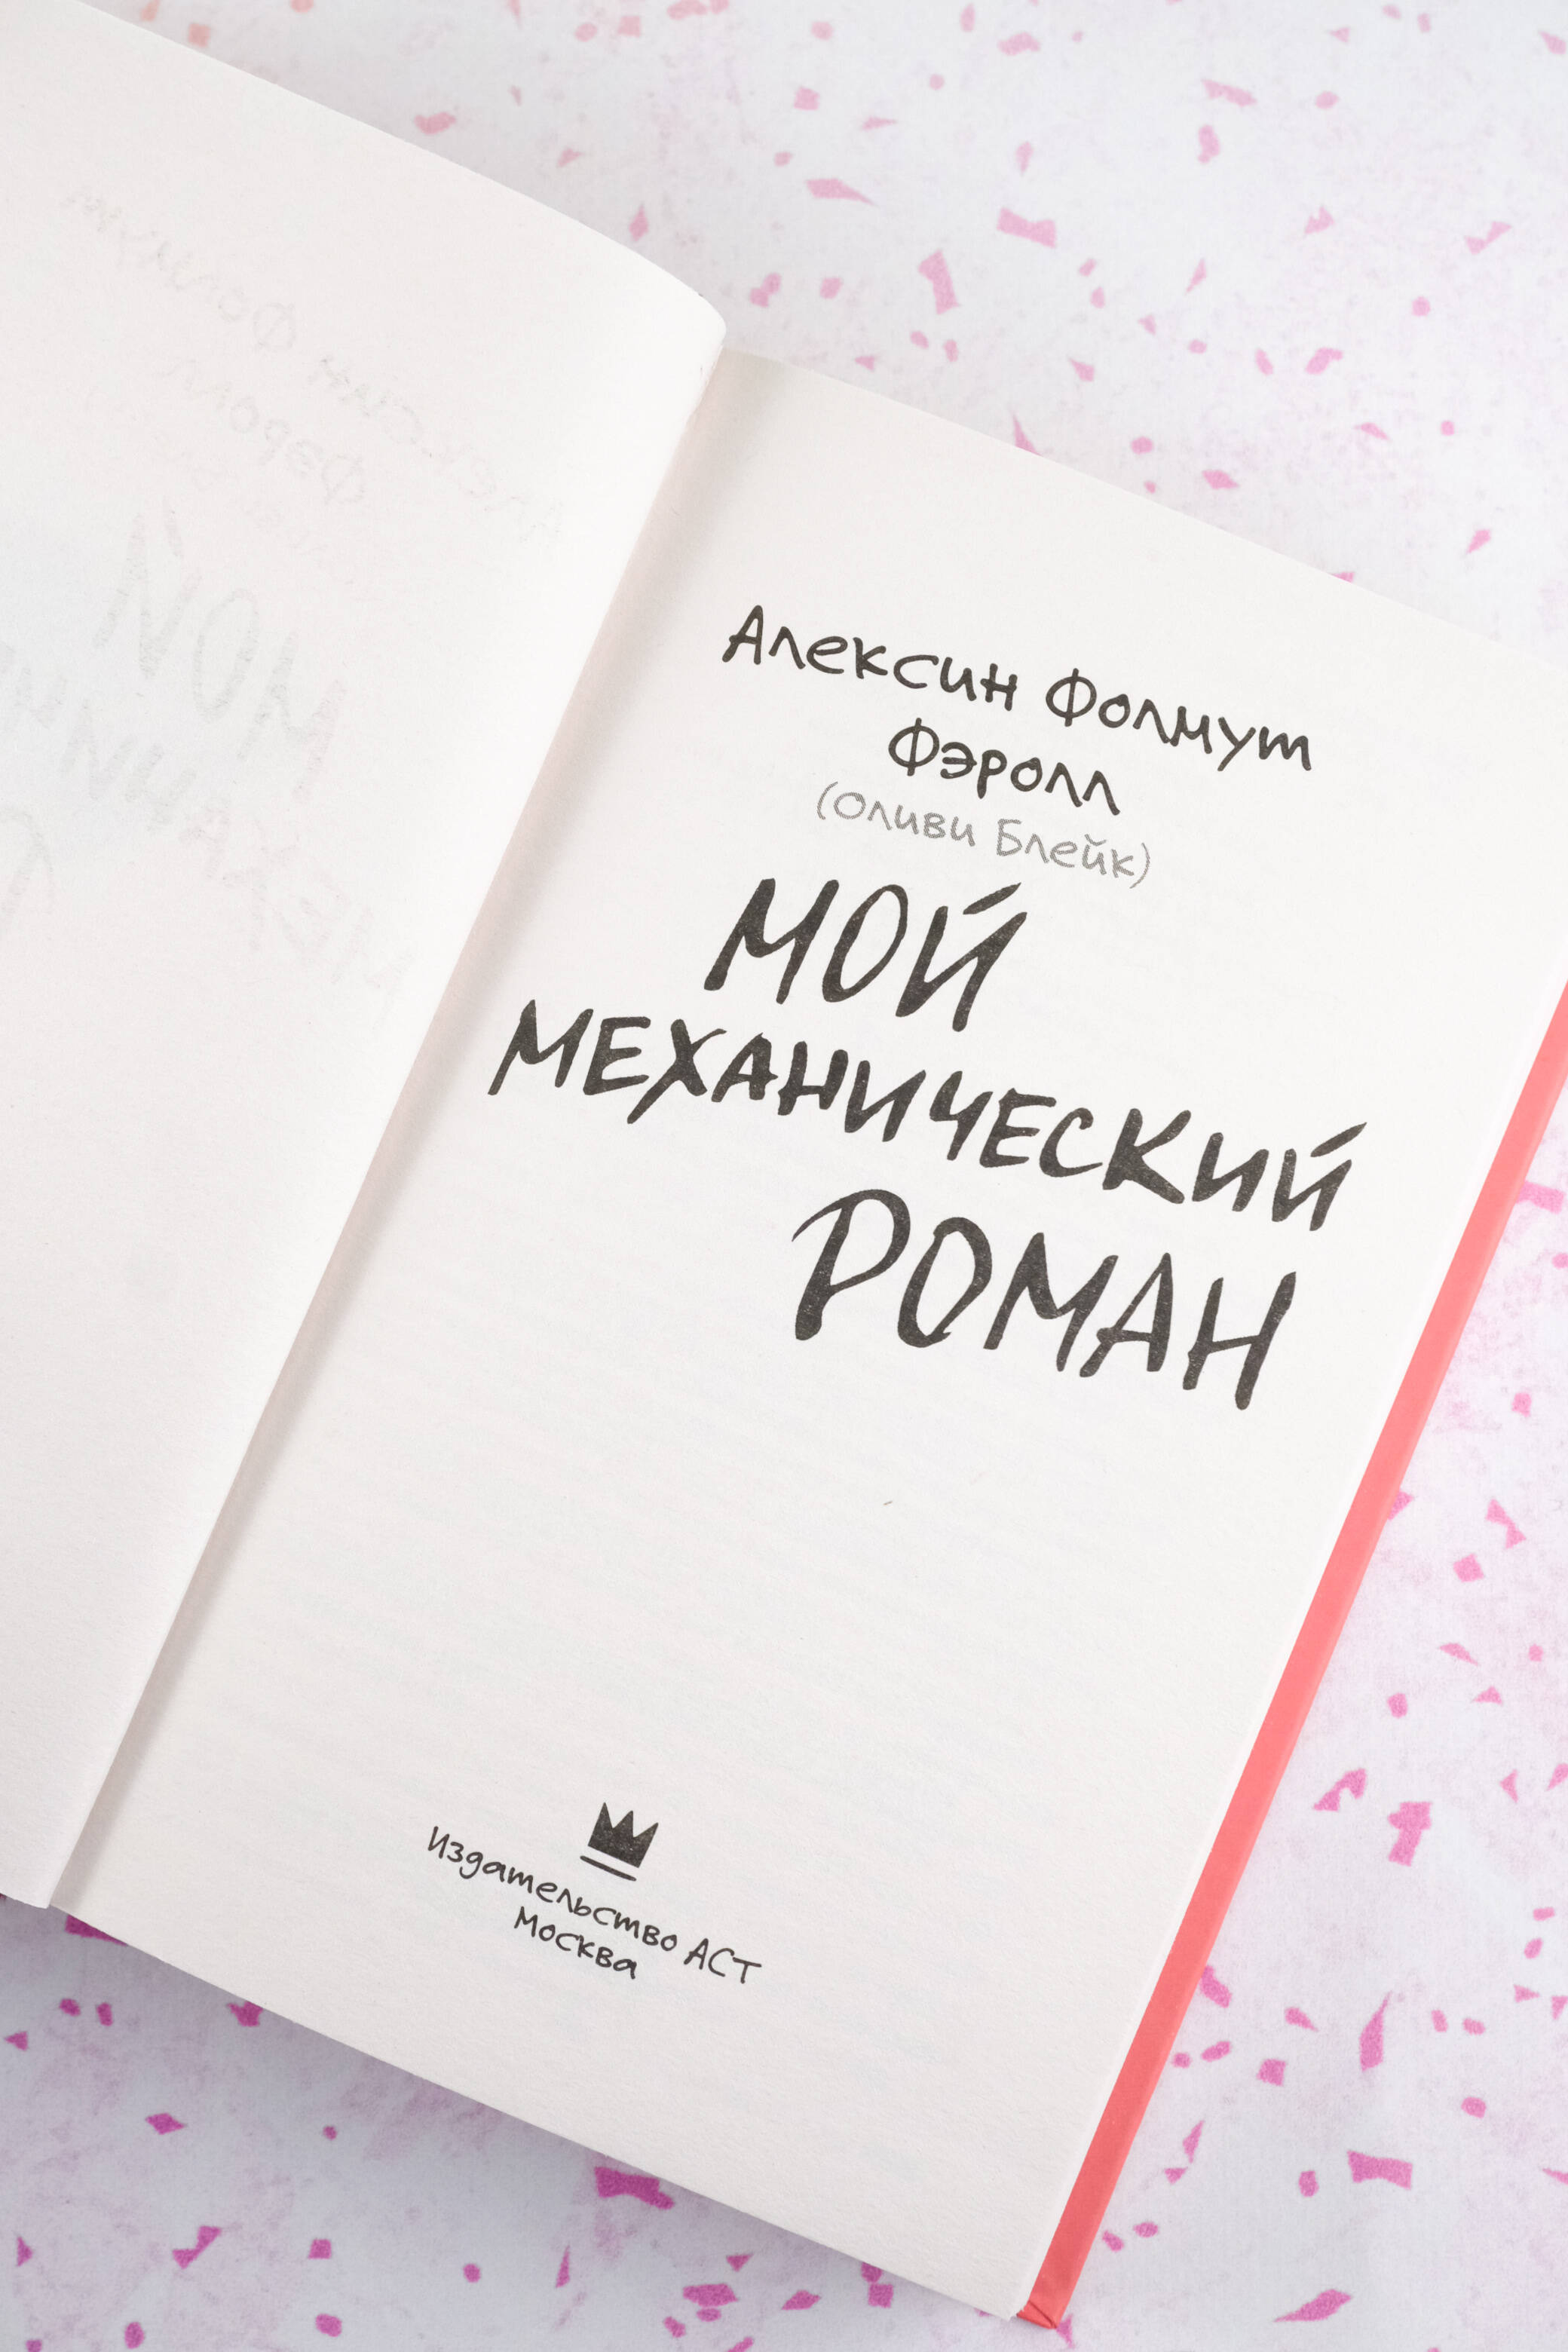 Алексин Фолмут
Фэролл
(Оливи Блейк)
МОЙ
МЕХАНИЧЕСКИЙ
РОМАН
Издательство АСТ
Москва